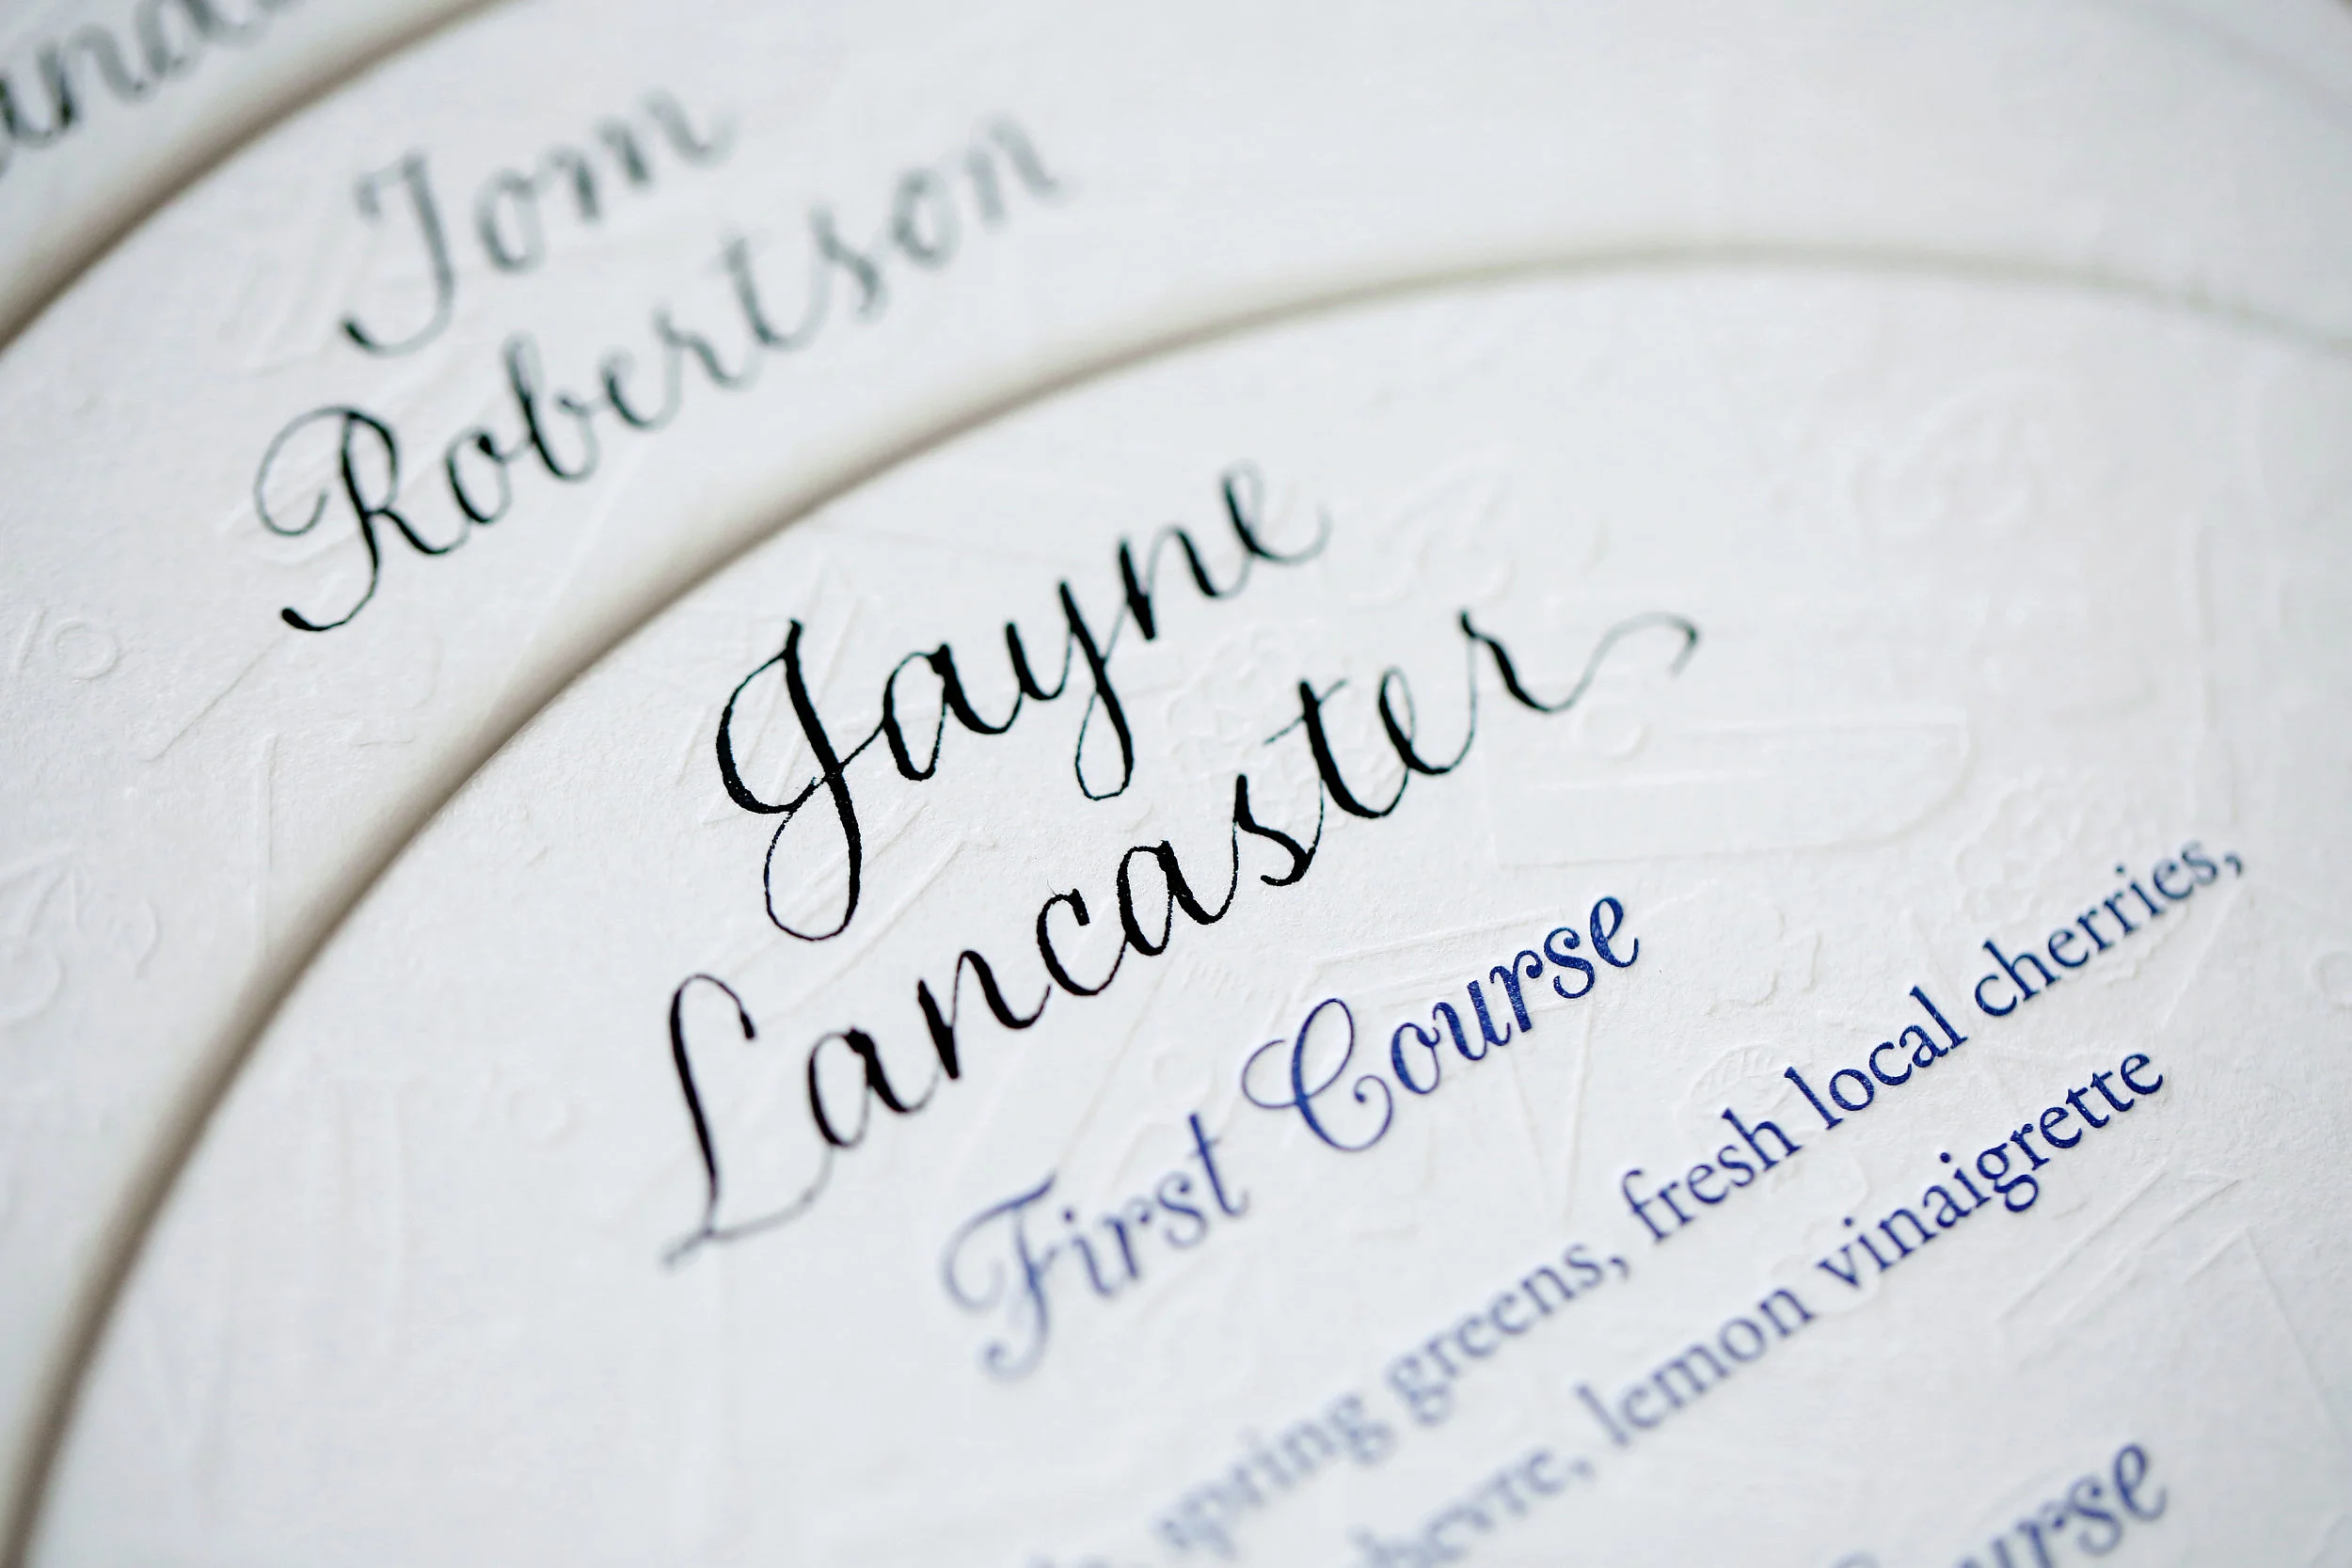 Tom
Robertson
Jayne
Lancaster
First Course
spring greens, fresh local cherries,
lemon vinaigrette